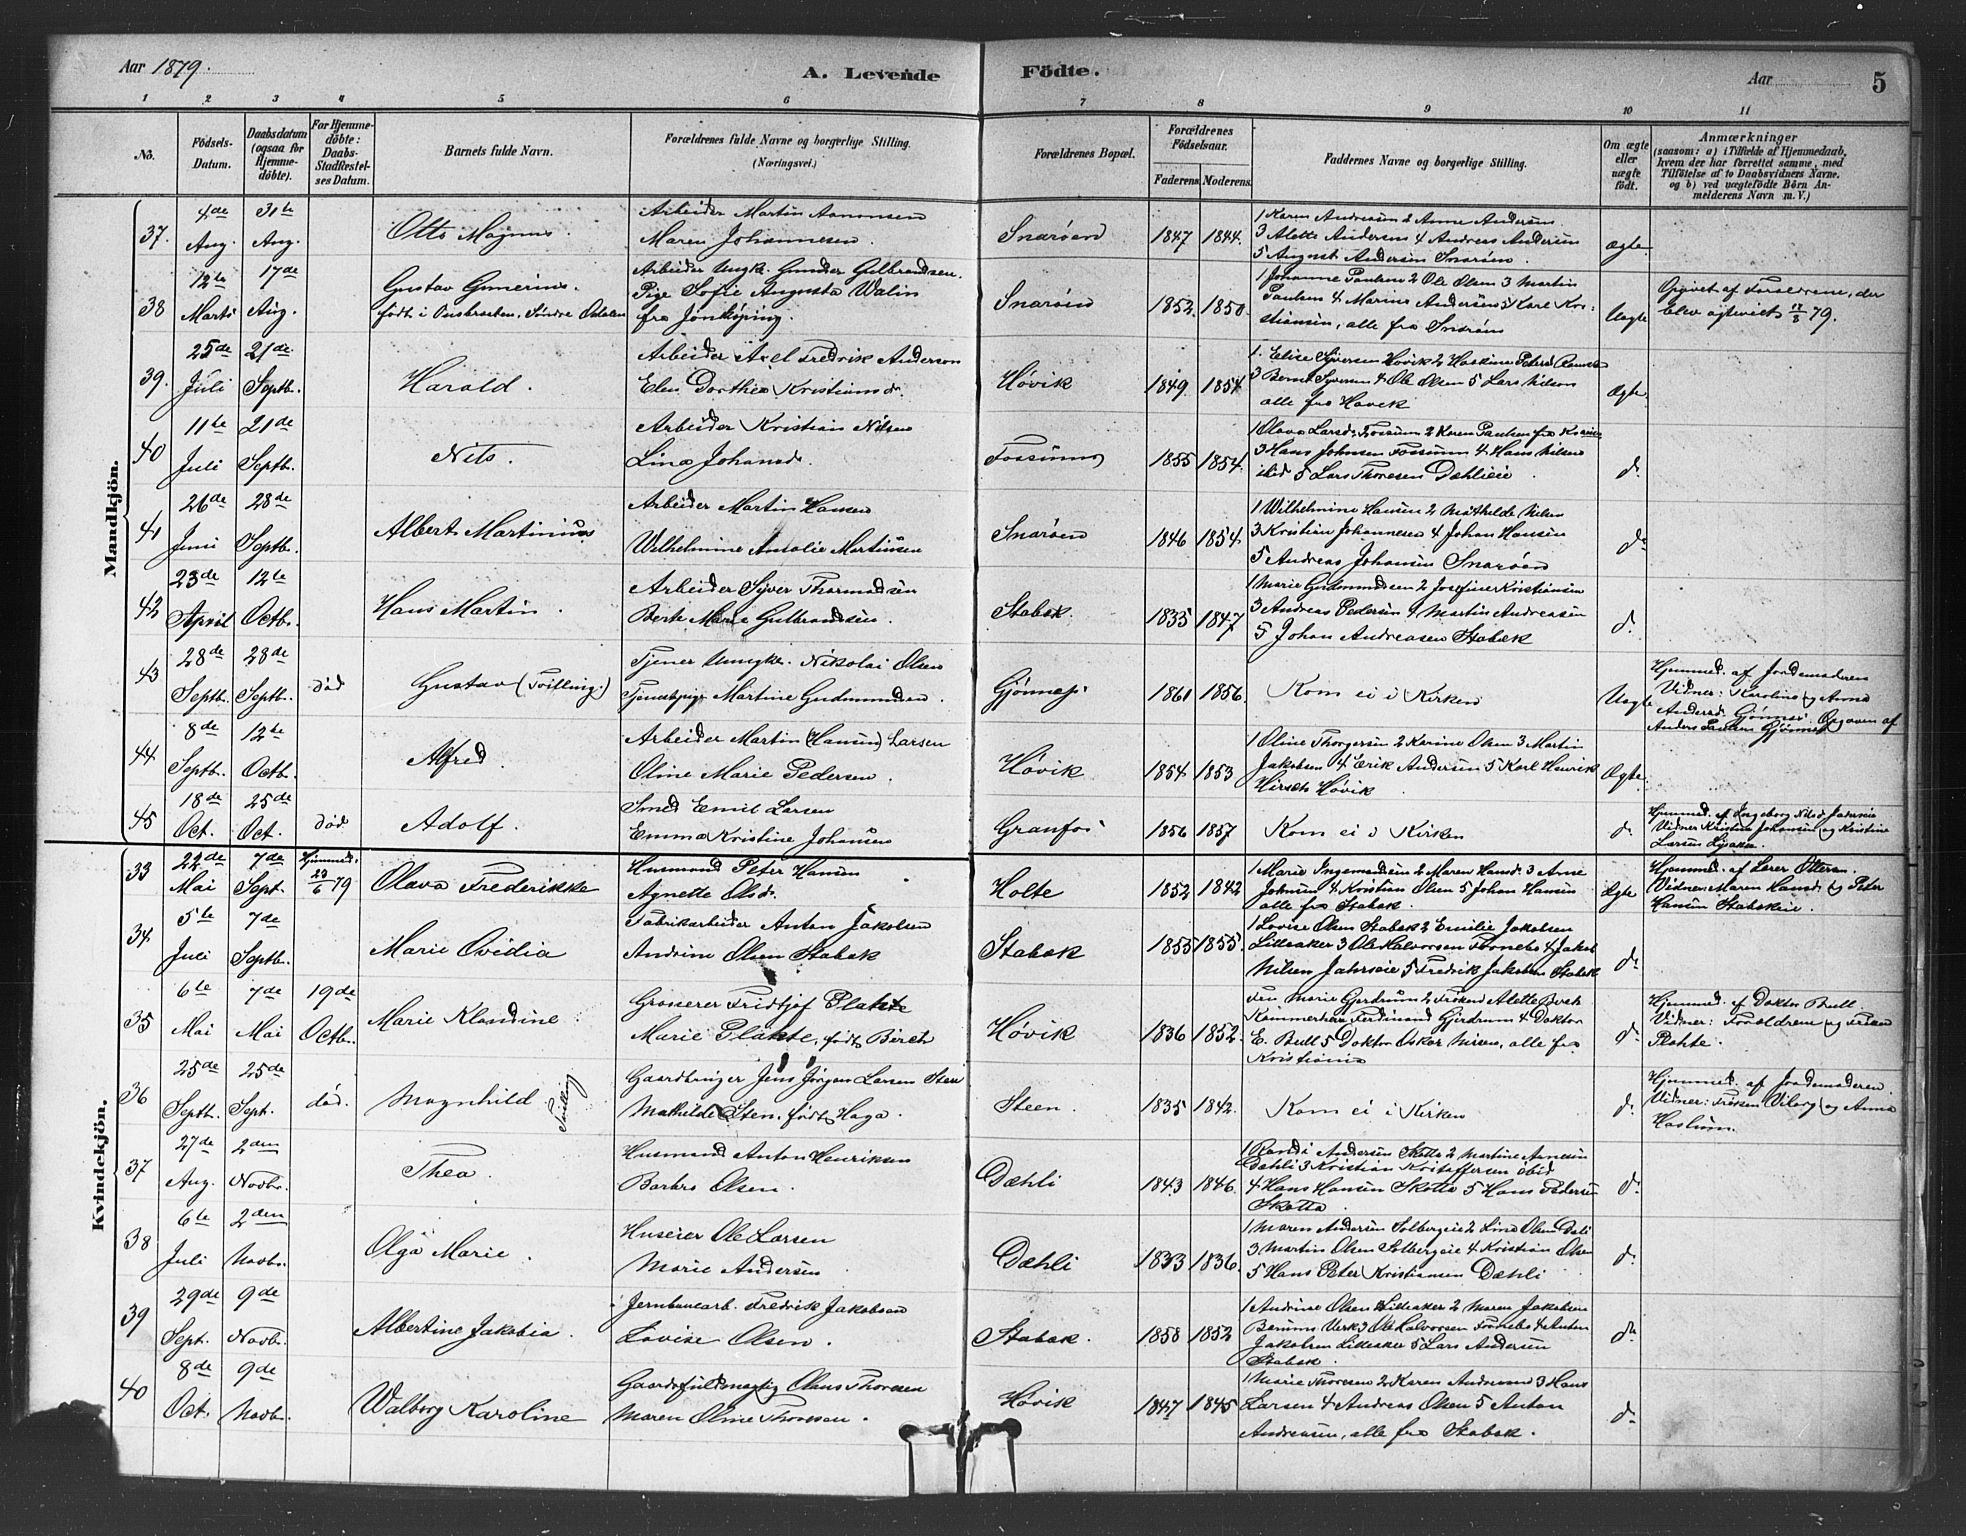 Aar 1879.
A. Levende Födte.
Aar
5
1 2 3 4 5 6 7 8 9 10 11
No.
Födsels-Datum.
Daabsdatum (ogsaa for Hjemmedöbte).
For Hjemmedöbte: Daabs-Stadfæstelses Datum.
Barnets fulde Navn.
Forældrenes fulde Navne og borgerlige Stilling.
(Næringsvei.)
Forældrenes Bopæl.
Forældrenes Födselsaar.
Faderens. Moderens.
Faddernes Navne og borgerlige Stilling.
Om ægte eller uægte födt.
Anmærkninger
(saasom: a) i Tilfælde af Hjemmedaab, hvem der har forrettet samme, med Tilföielse af to Daabsvidners Navne. og b) ved uægtefödte Börn Anmelderens Navn m. V.)
Mandkjön.
37. 4de Aug. 31te Aug. Otto Magnus. Arbeider Martin Aanonsen
Maren Johannesen. Snarøen 1847 1844. 1 Karen Andreasen 2 Anne Andersen
3 Alette Andersen 4 Andreas Andersen
5 August Andersen Snarøen Ægte
38 12te Marts 17de Aug. Gustav Gunerius.
født i Søndre Odalen Arbeider Ungk. Gunder Gulbrandsen.
Pige Sofie Augusta Walin
fra Jønkøping. Snarøen 1852. 1850. 1 Johanne Paulsen 2 Ole Olsen 3 Martin
Paulsen 4 Marius Andersen 5 Karl Kristiansen, alle fra Snarøen Uægte Opgivet af Forældrene, der
blev ægteviet 17/8 79.
39. 25de Juli 21de Septb. Harald. Arbeider Axel Fredrik Anderson
Elen Dorthea Kristiansd. Høvik 1849. 1854 1. Elise Syversen Høvik 2
3 Bernt Syversen 4 Ole Olsen 5 Lars Nilsen
alle fra Høvik Ægte.
40 11te Juli 21de Septb. Nils. Arbeider Kristian Nilsen
Lina Johansd. Fossum 1855 1854. 1 Olava Larsd. Fossum 2 Karen Paulsen fra
3 Hans Johnsen Fossum 4 Hans Nilsen
ibid 5 Lars Thoresen Dæhlieie d.
41 26de Juni 28de Septb. Albert Martinius Arbeider Martin Hansen
Wilhelmine Amalie Martinsen Snarøen 1846 1854. 1 Wilhelmine Hansen 2 Mathilde Nilsen
3 Kristian Johannesen 4 Johan Hansen
5 Andreas Johansen Snarøen d.
42 23de April 12te Octb. Hans Martin. Arbeider Syver Thormodsen
Berte Marie Gulbrandsen. Stabæk. 1835 1847 1 Marie Gudmundsen 2 Josefine Kristiansen
3 Andreas Pedersen 4 Martin Andreasen
5 Johan Andreasen Stabæk d.
43 28de Septb. 28de Septb. død Gustav (Tvilling) Tjener Ungk. Nikolai Olsen
Tjenestepige Martine Gudmundsen. Gjønnes. 1861 1856. Kom ei i Kirken Uægte Hjemmed. af Jordemoderen
Vidner: Karoline og Anna
Andersd. Gjønnes. Opgaven af
Anders Paulsen Gjønnes
44 8de Septb. 12te Octb. Alfred. Arbeider Martin (Hansen) Larsen
Oline Marie Pedersen. Høvik 1854. 1853 1 Oline Thorgersen 2 Karine Olsen 3 Martin
Jakobsen 4 Erik Andersen 5 Karl Henrik
Høvik. Ægte.
45 18de Oct. 25de Oct. død Adolf. Smed Emil Larsen
Emma Kristine Johansen Granfos 1856 1857 Kom ei i Kirken d. Hjemmed. af Ingeborg Nilsd.
Vidner Kristian Johansen og Kristine
Larsen Lysaker.
Kvindekjön.
33 22de Mai 7de Sept. Hjemmed. 23/6 79 Olava Frederikke Husmand Peter Hansen
Agnette Olsd. Holte 1852 1842 1 Marie Ingemundsen 2 Maren Hansd. 3 Arne
Johnsen 4 Kristian Olsen 5 Johan Hansen
alle fra Stabæk. Ægte Hjemmed. af Lærer Ottersen.
Vidner: Maren Hansd. og Peter
Hansen Stabækeie.
34. 5te Juli 7de Septb. Marie Ovidia Fabrikarbeider Anton Jakobsen
Andrine Olsen Stabæk Stabæk 1855 1855. 1 Lovise Olsen Stabæk 2 Emilie Jakobsen
Lilleaker 3 Ole Halvorsen Fornebo 4 Jakob
Nilsen Jahrseie 5 Fredrik Jakobsen Stabæk d.
35 6te Mai 7de Mai 19de Octb. Marie Klaudine Grosserer Fridtjof Plahte
Marie Plahte, født Børch Høvik 1836 1852. Fru Marie Gjerdrum 2 Frøken Alette
Kammerherre Ferdinand Gjerdrum 4 Doktor
E. Bull 5 Doktor Oskar Nissen, alle fra
Kristiania d. Hjemmed. af Doktor Bull.
Vidner: Forældrene og Frøken
Plahte.
36 25de Septb. 25de Sept. død. Magnhild Tvilling Gaardbruger Jens Jørgen Larsen Sten
Mathilde Sten, født Haga. Steen. 1835 1842. Kom ei i Kirken d. Hjemmed. af Jordemoderen
Vidner: Frøken Viborg og Anna
Haslum.
37 27de Aug. 2den Novbr. Thea. Husmand Anton Henriksen
Barbro Olsen. Dæhli 1843 1846. 1 Randi Andersen Skotta 2 Martine Arnesen
Dæhli 3 Kristian Kristoffersen ibid
4 Hans Hansen Skotta 5 Hans Pedersen
Skotta. d.
38 6te Juli 2den Novbr. Olga Marie. Huseier Ole Larsen
Marie Andersen Dæhli 1833 1836. 1 Maren Andersen Solbergeie 2 Lina Olsen Dæli
3 Martin Olsen Solbergeie 4 Kristian Olsen
5 Hans Peter Kristiansen Dæhli d.
39 29de Sept. 9de Novbr. Albertine Jakobia. Jernbanearb. Fredrik Jakobsen
Lovise Olsen. Stabæk. 1858 1852 1 Andrine Olsen Lilleaker 2 Maren Jakobsen
Bærums Verk 3 Ole Halvorsen Fornebo 4 Anton
Jakobsen Lilleaker 5 Lars Andersen
Stabæk. d.
40 8de Oct. 9de Novbr. Walborg Karoline Gaardsfuldmægtig Olaus Thoresen
Maren Oline Thoresen. Høvik 1847 1845 1 Marie Thoresen 2 Karen Andreasd 3 Hans
Larsen 4 Andreas Olsen 5 Anton
Andreasen, alle fra Stabæk. d.